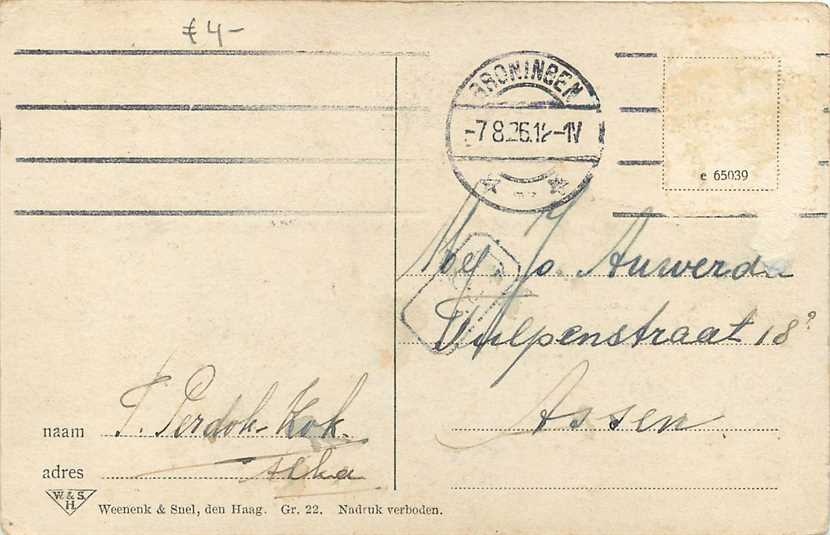 € 4-
GRONINGEN
-7 8.26.12-1V
e 65039
Mej Jo. Auwerda
Tulpenstraat 18?
Assen
naam T. Perdok-Kok.
adres
W.&S.
H.
Weenenk & Snel, den Haag. Gr. 22. Nadruk verboden.